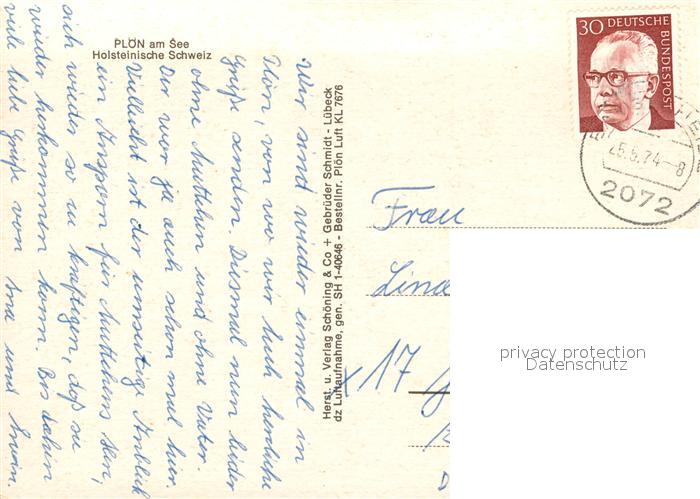 PLÖN am See
Holsteinische Schweiz
Wir sind wieder einmal in
Plön, von wo wir Euch herzliche
Grüße senden. Diesmal nun leider
ohne Muttchen und ohne Vater.
Der war ja auch schon mal hier.
Vielleicht ist der umseitige Anblick
ein Ansporn für Muttchens
sich wieder so zu kräftigen, daß sie
wieder herkommen kann. Bis dahin
viele liebe Grüße von und Erwin.
Herst. u. Verlag Schöning & Co + Gebrüder Schmidt - Lübeck
dz Luftaufnahme, gen. SH 1-40646 - Bestellnr. Plön Luft KL 7676
30 DEUTSCHE
BUNDESPOST
25.5.74-8
2072
Frau
x 17
privacy protection
Datenschutz